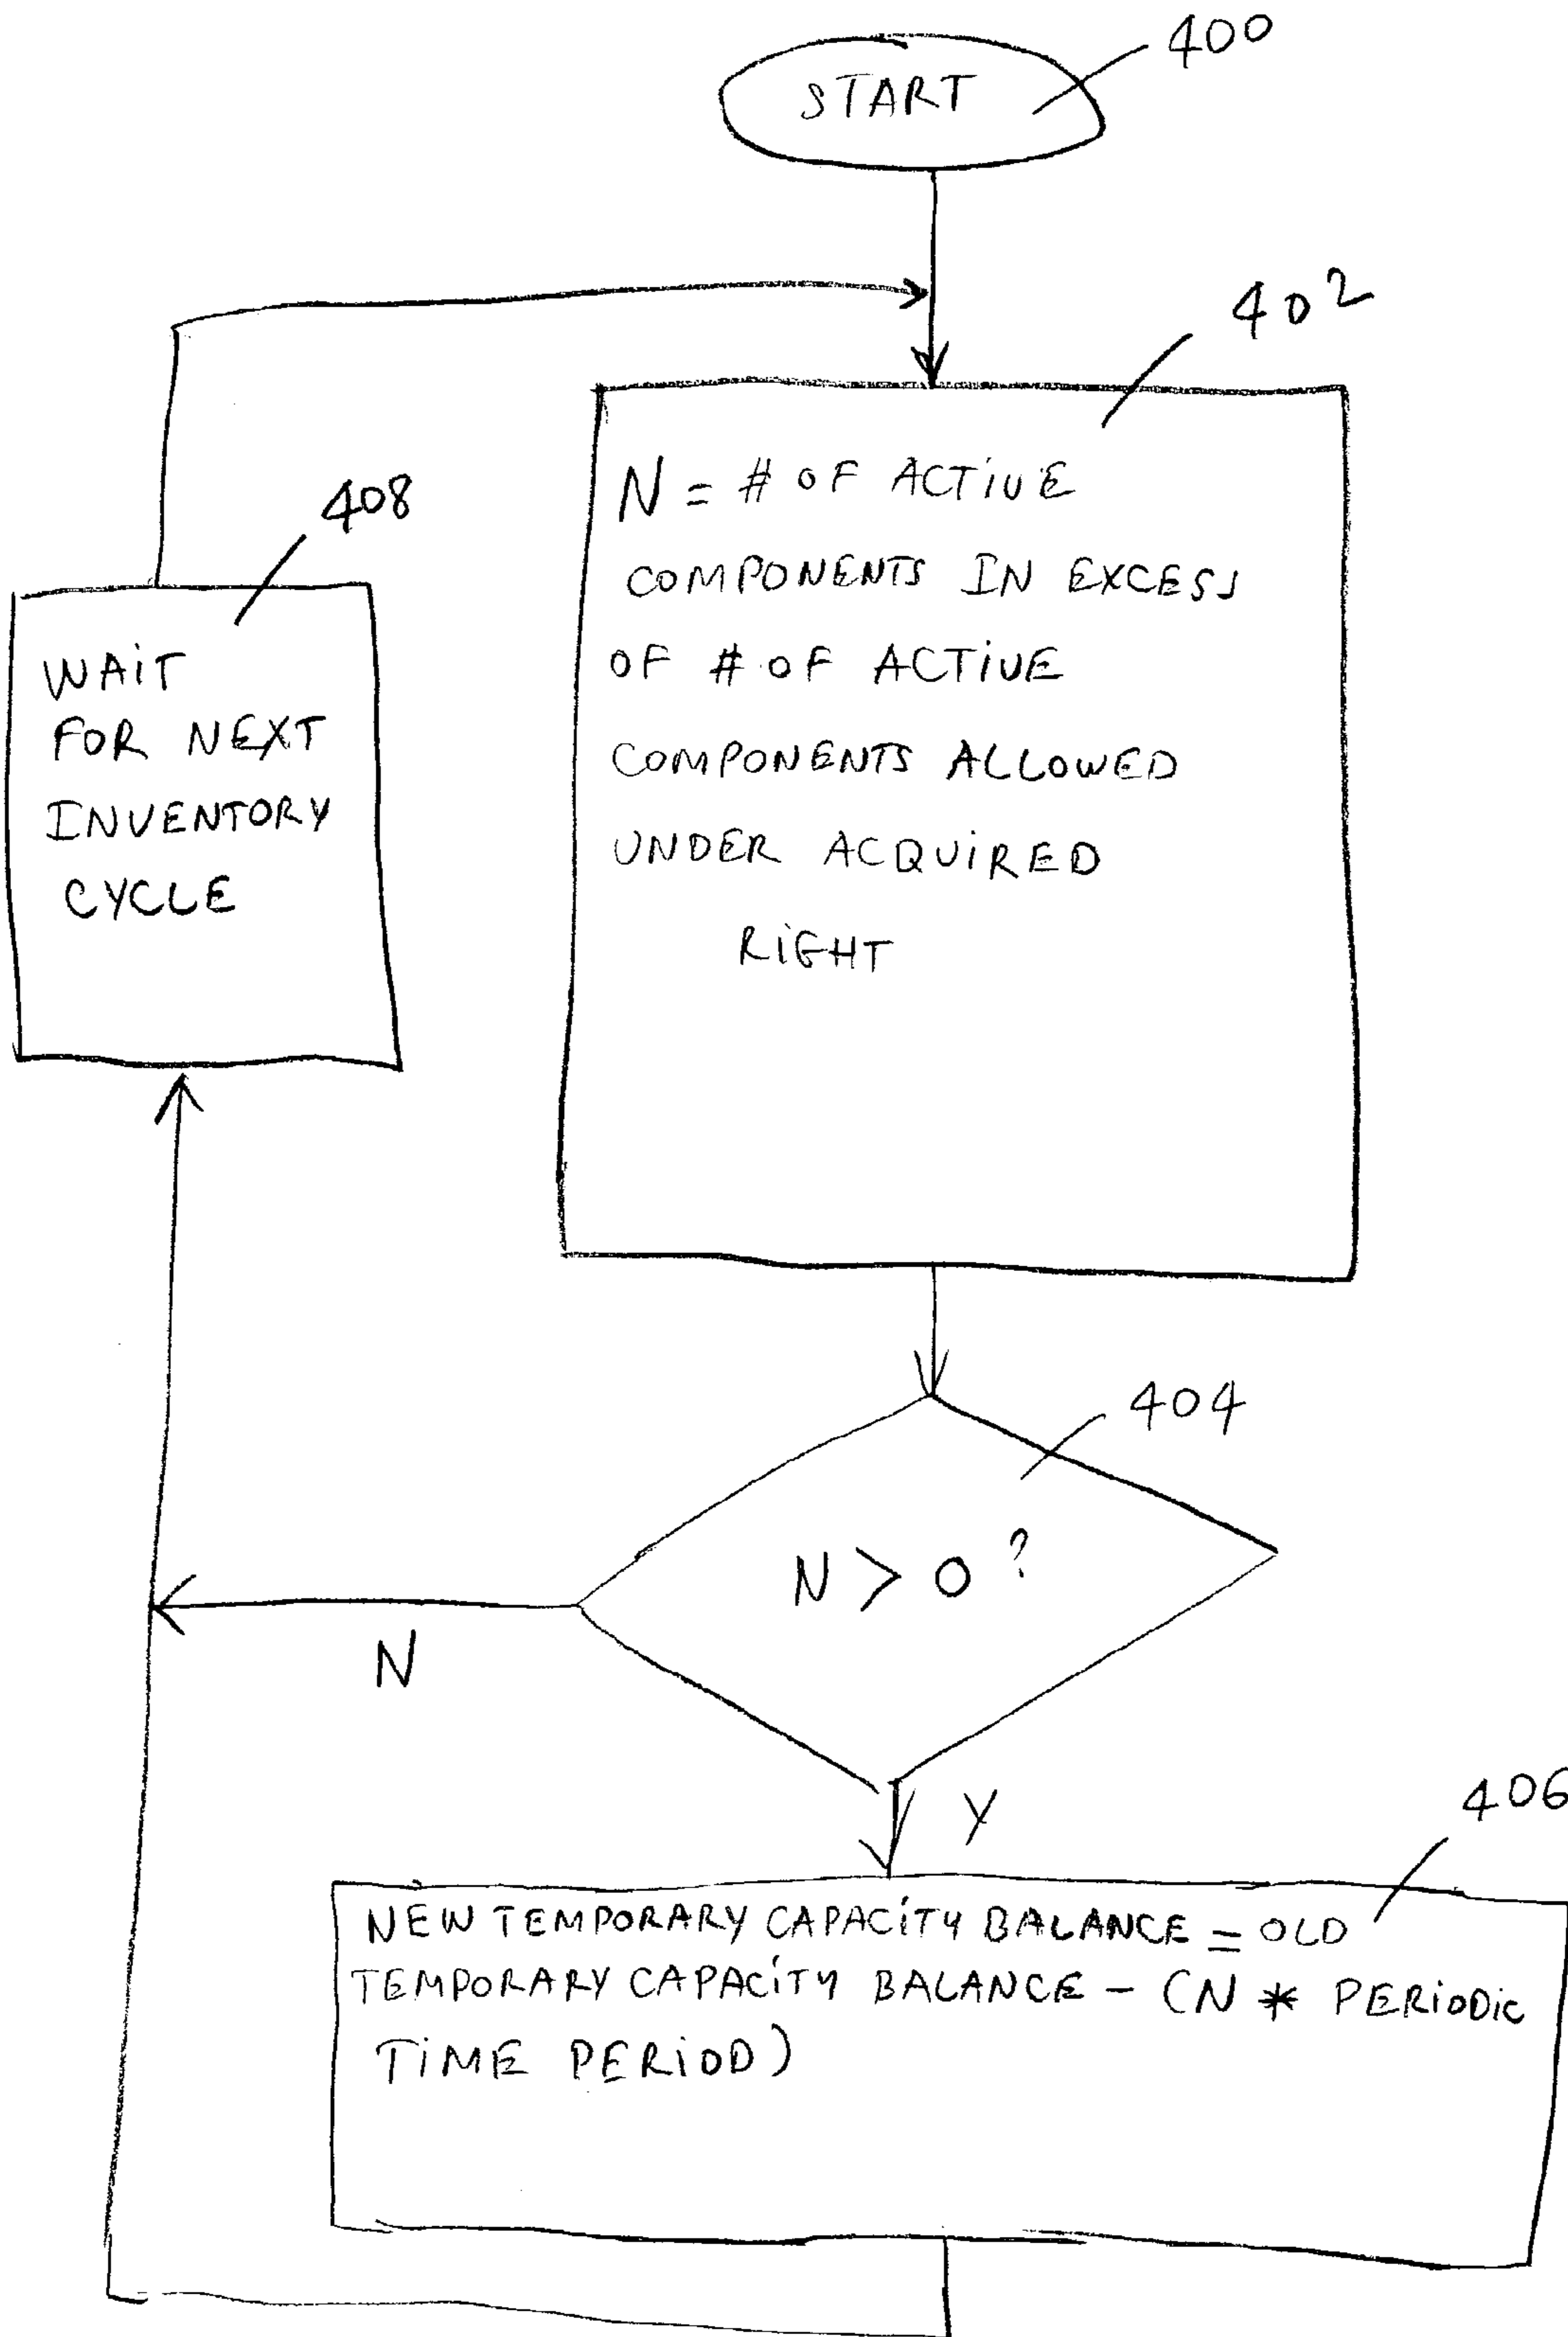 400
START
402
N = # OF ACTIVE
COMPONENTS IN EXCESS
OF # OF ACTIVE
COMPONENTS ALLOWED
UNDER ACQUIRED
RIGHT
408
WAIT
FOR NEXT
INVENTORY
CYCLE
404
N > 0 ?
N
Y
406
NEW TEMPORARY CAPACITY BALANCE = OLD
TEMPORARY CAPACITY BALANCE - (N * PERIODIC
TIME PERIOD)